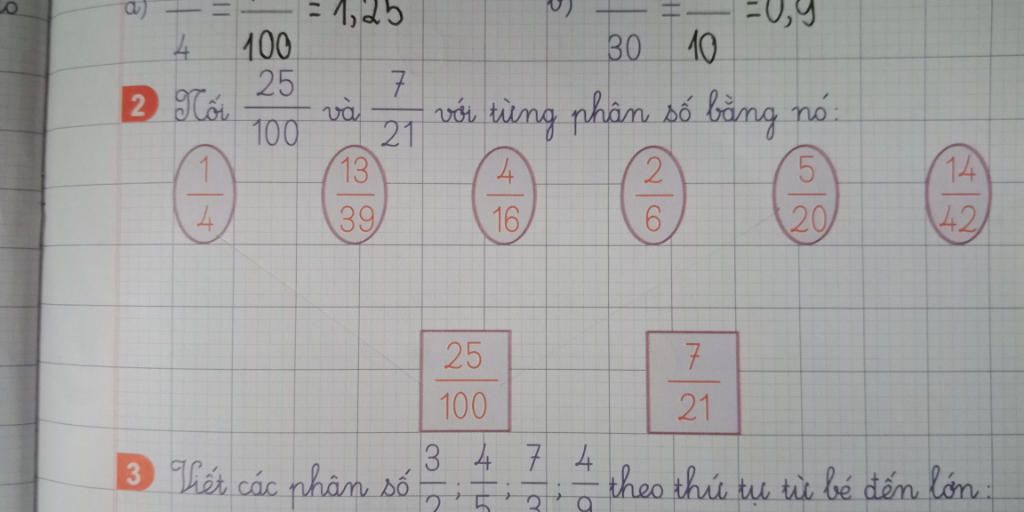 a) — = — = 1,25 b) — = — = 0,9
4 100 30 10
2 Nối 25/100 và 7/21 với từng phân số bằng nó:
1/4 13/39 4/16 2/6 5/20 14/42
25/100 7/21
3 Viết các phân số 3/2; 4/5; 7/3; 4/9 theo thứ tự từ bé đến lớn: